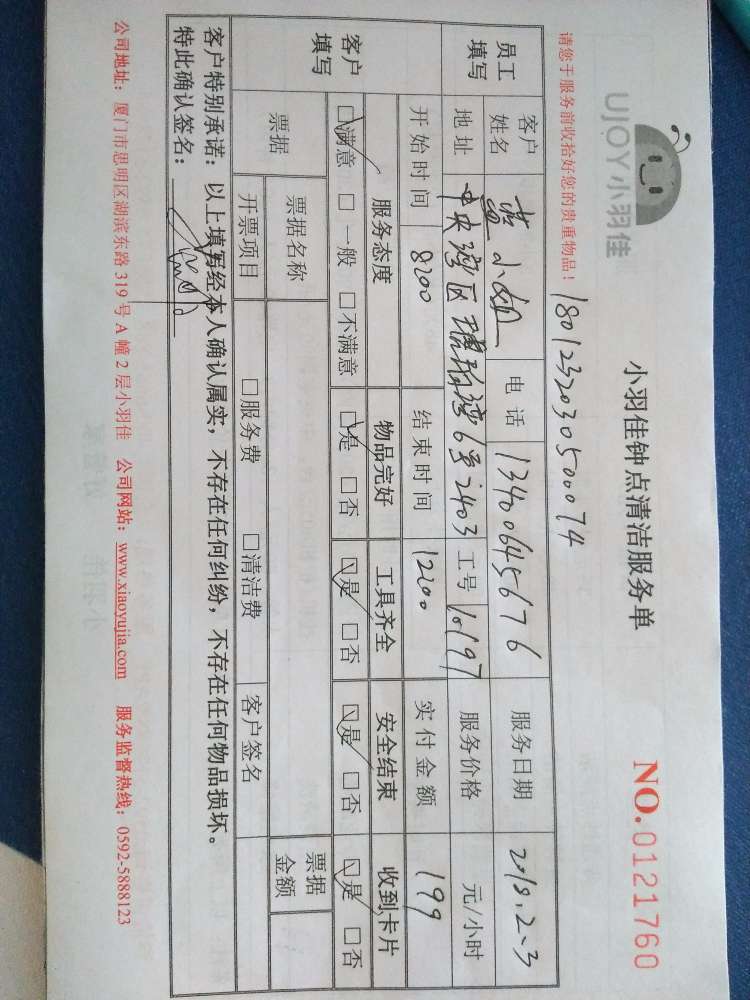 UJOY小羽佳
小羽佳钟点清洁服务单
NO.0121760
请您于服务前收拾好您的贵重物品!
1801232030500074
员工填写 客户姓名 黄小姐 电话 13400645676 服务日期 2018.2.3
地址 中央湾区 6号2403 工号 10197 服务价格 元/小时
开始时间 8:00 结束时间 12:00 实付金额 199
客户填写 服务态度 物品完好 工具齐全 安全结束 收到卡片
☑满意 □一般 □不满意 ☑是 □否 ☑是 □否 ☑是 □否 ☑是 □否
票据 票据名称 票据金额
开票项目 □服务费 □清洁费 客户签名
客户特别承诺:以上填写经本人确认属实,不存在任何纠纷,不存在任何物品损坏。
特此确认签名:
公司地址:厦门市思明区湖滨东路319号A幢2层小羽佳 公司网站:www.xiaoyujia.com 服务监督热线:0592-5888123